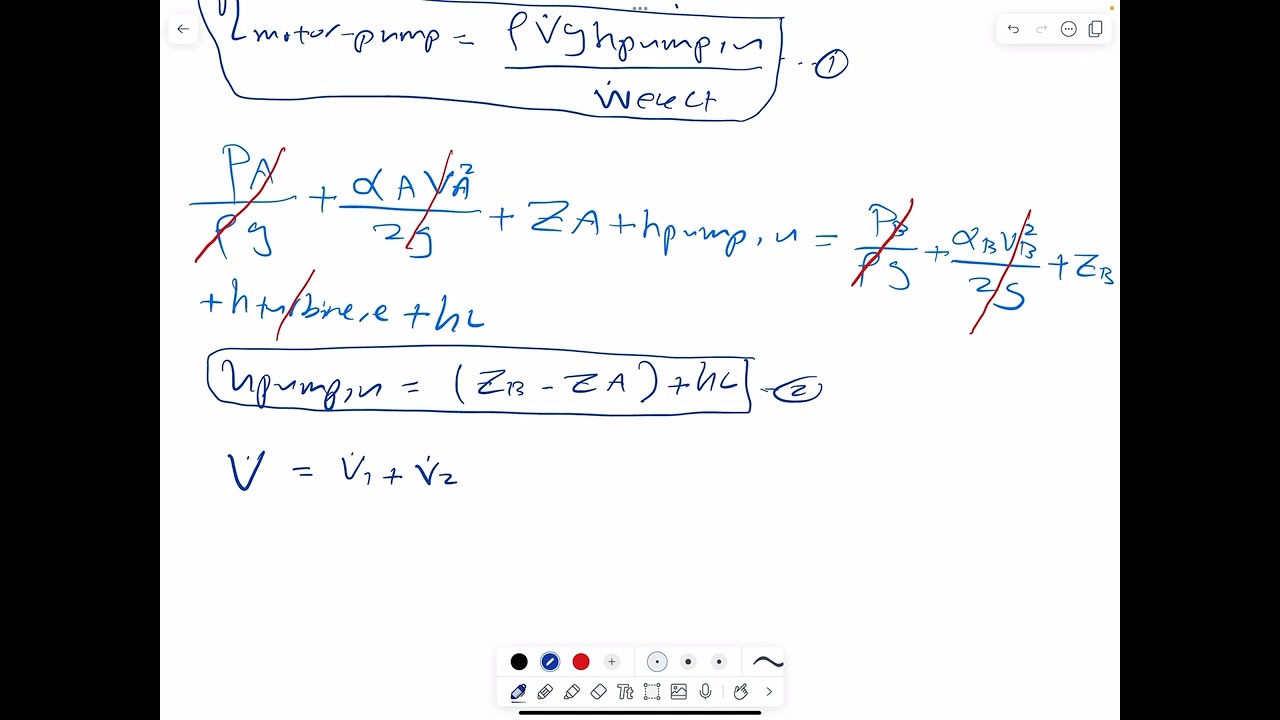 η motor-pump = ρV̇ghpump,u / Ẇelect ... ①
PA/ρg + αAVA²/2g + ZA + hpump,u = PB/ρg + αBVB²/2g + ZB
+ hturbine,e + hL
hpump,u = (ZB - ZA) + hL - ②
V̇ = V̇1 + V̇2
Tt